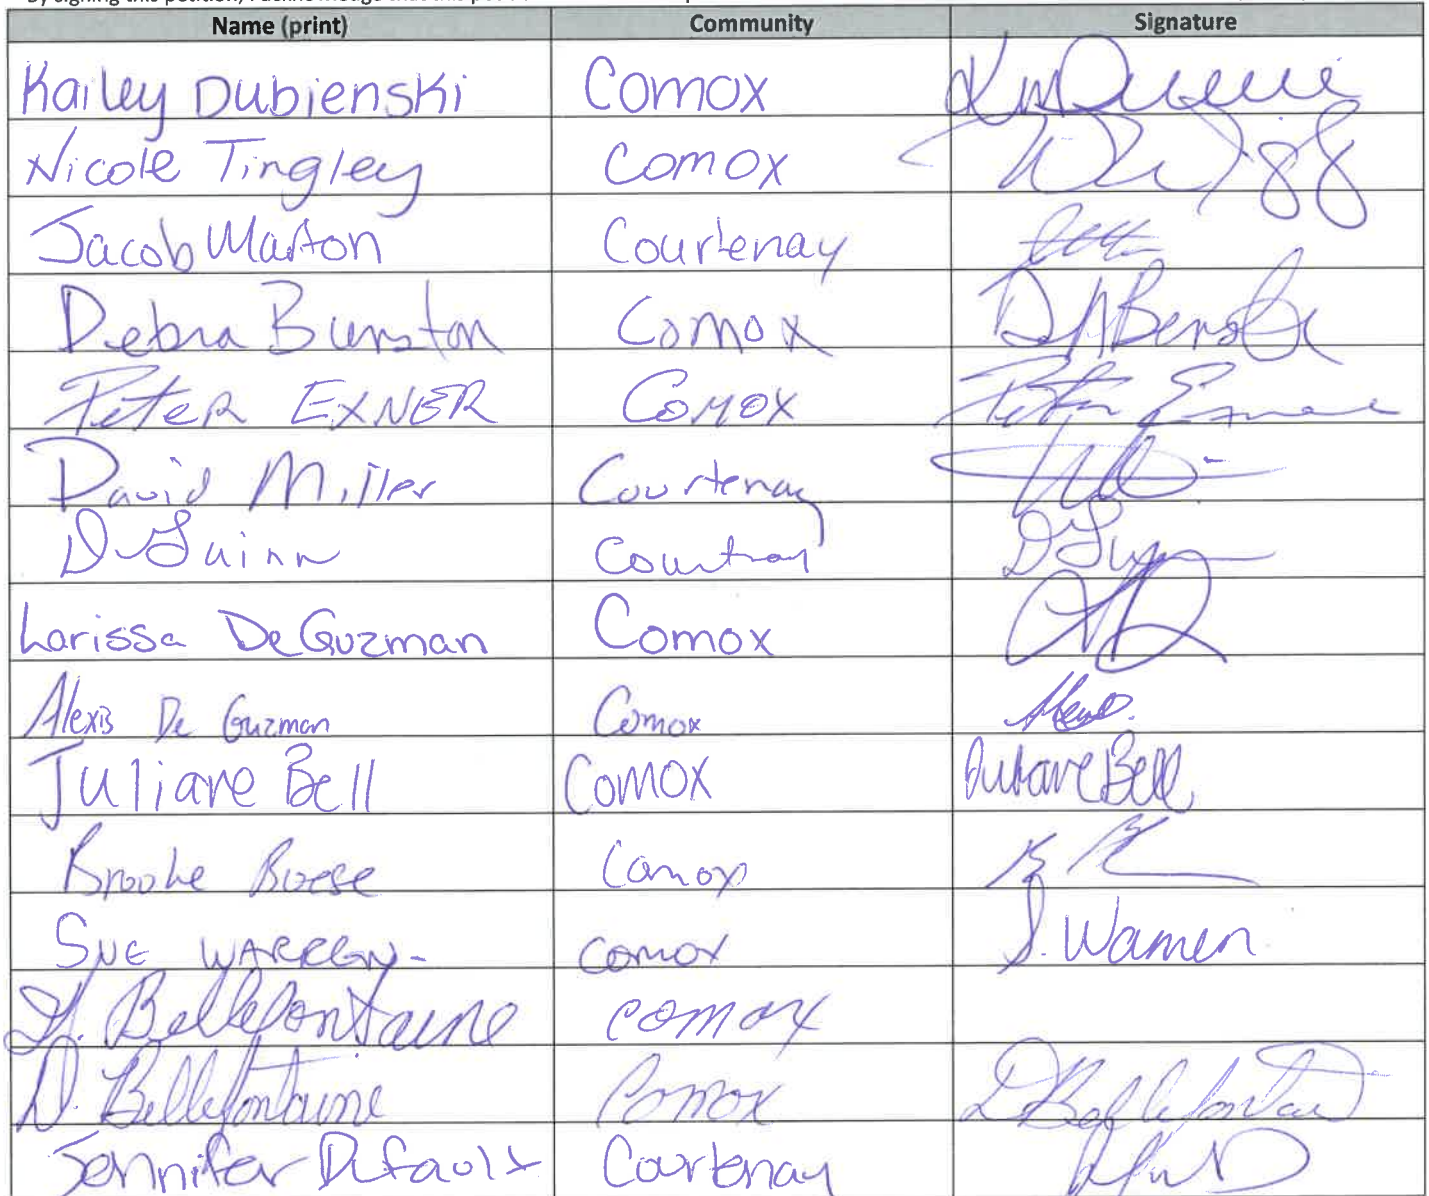 By signing this petition, I acknowledge that this
Name (print) Community Signature
Kailey Dubienski Comox
Nicole Tingley Comox
Jacob Marton Courtenay
Debra Burston Comox
Peter EXNER Comox Peter Exner
David Miller Courtenay
D Guinn Courtnay
Larissa DeGuzman Comox
Alexis De Guzman Comox
Juliane Bell Comox Juliane Bell
Brooke Boese Comox
SUE WARREN- Comox S. Warren
Bellefontaine Comox
D. Bellefontaine Comox D Bellefontaine
Jennifer Dufault Courtenay